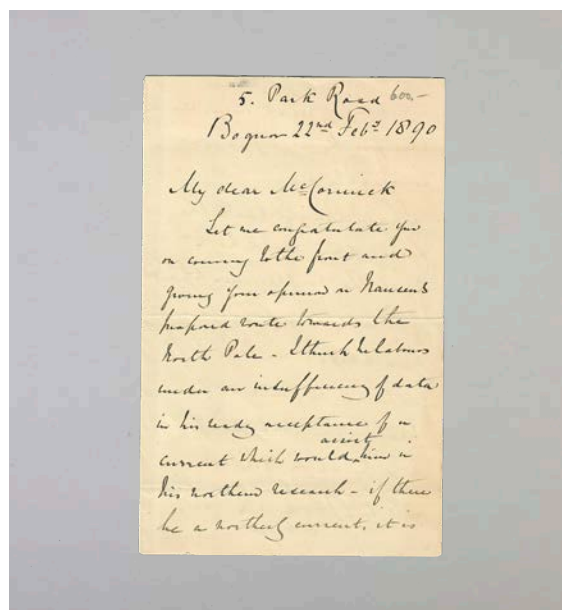 5. Park Road 600.-
Bognor 22nd Feby 1890
My dear McCormick
Let me congratulate you
on coming to the front and
giving your opinion on Nansen's
proposed route towards the
North Pole - I think he labours
under an insufficiency of data
in his ready acceptance of a
current which would assist him in
his northern research - if there
be a northerly current, it is